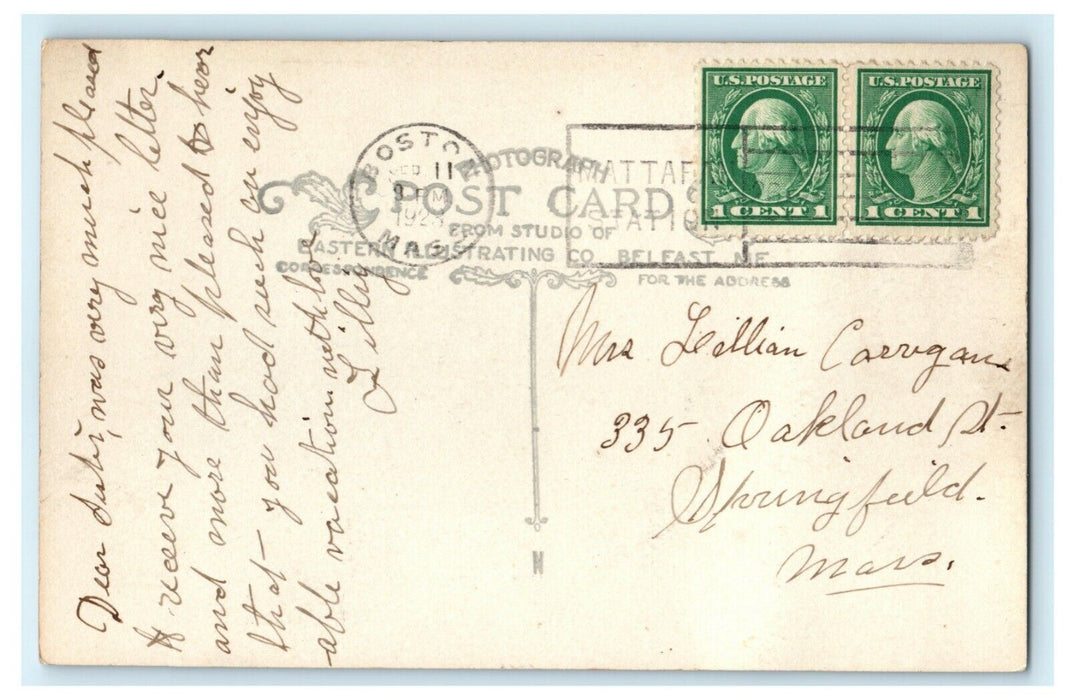 Dear Sister, was very much pleased
to receive your very nice letter
and more than pleased to hear
that you had such an enjoy
able vacation with love
Lilley
BOSTON
SEP 11
PM
MASS
MATTAPAN
STATION
PHOTOGRAPH
POST CARD
FROM STUDIO OF
EASTERN ILLUSTRATING CO. BELFAST, ME.
CORRESPONDENCE
FOR THE ADDRESS
U.S. POSTAGE
1 CENT 1
U.S. POSTAGE
1 CENT 1
Mrs Lillian Corrigan
335 Oakland St.
Springfield.
Mass.
N